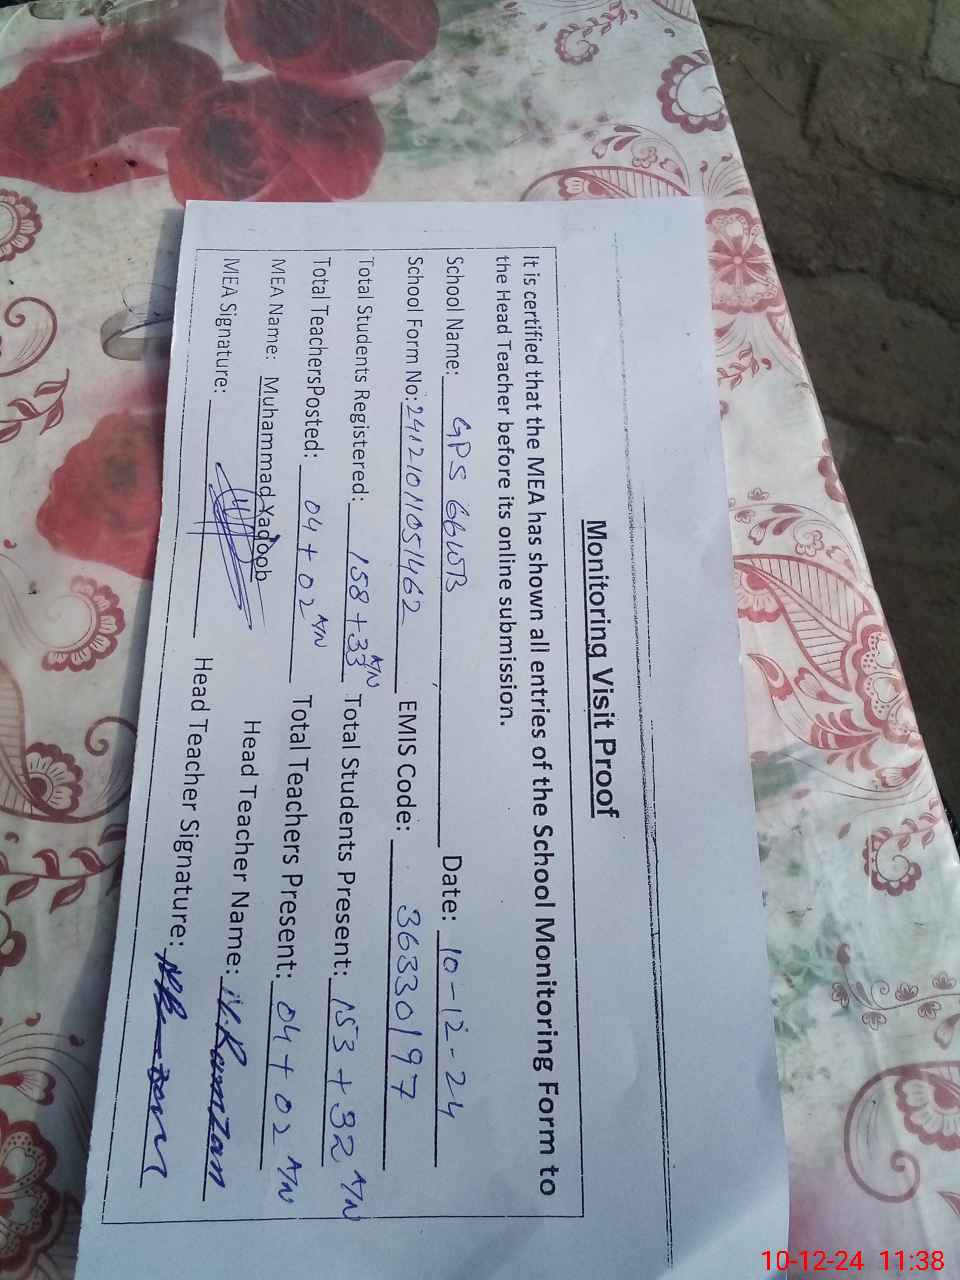 Monitoring Visit Proof
It is certified that the MEA has shown all entries of the School Monitoring Form to
the Head Teacher before its online submission.
School Name: GPS 66WB Date: 10-12-24
School Form No: 24121011051462 EMIS Code: 36330197
Total Students Registered: 158 + 33 A/N Total Students Present: 153 + 32 A/N
Total TeachersPosted: 04 + 02 A/N Total Teachers Present: 04 + 02 A/N
MEA Name: Muhammad Yaqoob Head Teacher Name: M. Ramzan
MEA Signature: Head Teacher Signature:
10-12-24 11:38